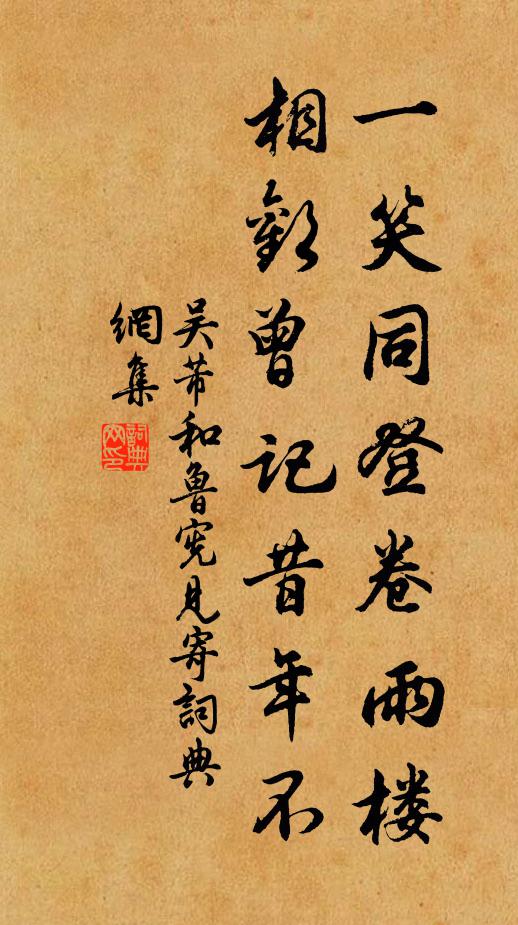 一笑同登卷雨楼
相歡曾记昔年不
吴芾和魯宪见寄詞典
網集
詞典
网印